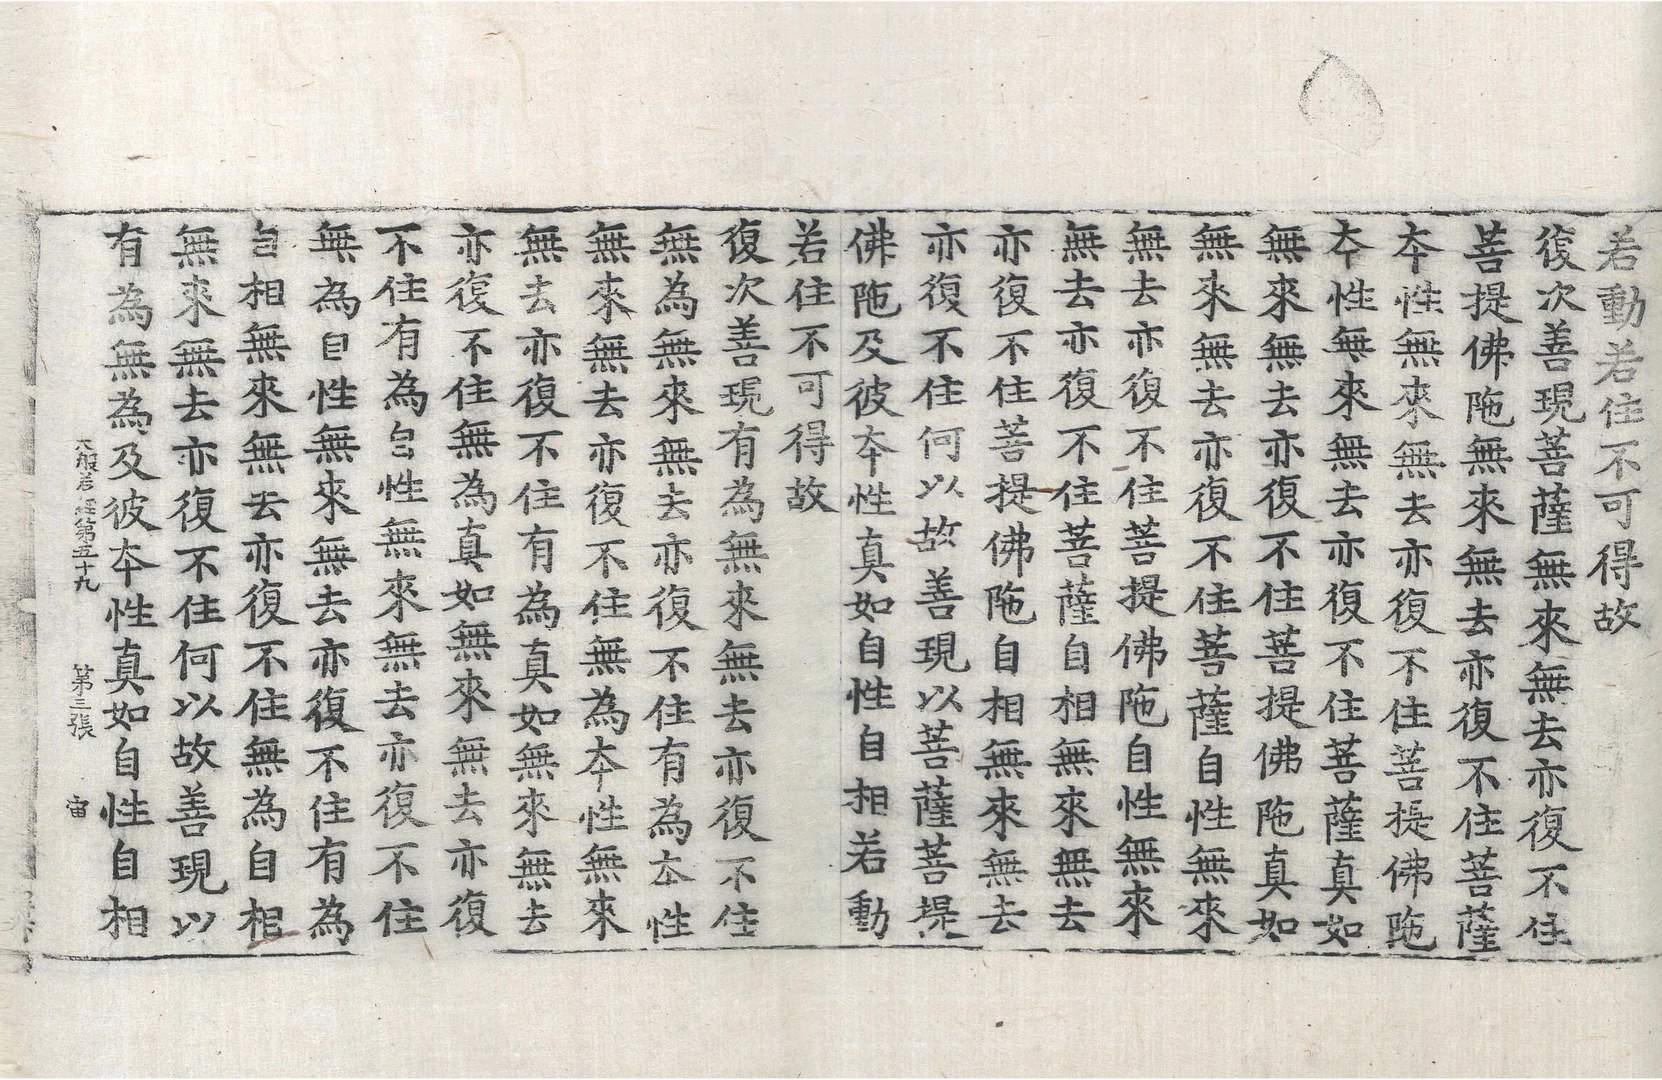 若動若住不可得故
復次善現菩薩無來無去亦復不住
菩提佛陁無來無去亦復不住菩薩
夲性無來無去亦復不住菩提佛陁
夲性無來無去亦復不住菩薩真如
無來無去亦復不住菩提佛陁真如
無來無去亦復不住菩薩自性無來
無去亦復不住菩提佛陁自性無來
無去亦復不住菩薩自相無來無去
亦復不住菩提佛陁自相無來無去
亦復不住何以故善現以菩薩菩提
佛陁及彼夲性真如自性自相若動
若住不可得故
復次善現有為無來無去亦復不住
無為無來無去亦復不住有為夲性
無來無去亦復不住無為夲性無來
無去亦復不住有為真如無來無去
亦復不住無為真如無來無去亦復
不住有為自性無來無去亦復不住
無為自性無來無去亦復不住有為
自相無來無去亦復不住無為自相
無來無去亦復不住何以故善現以
有為無為及彼夲性真如自性自相
大般若經第五十九 第三張 宙